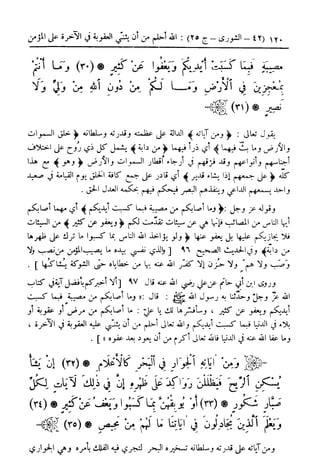 ١٢٠ (٤٢ – الشورى – ج ٢٥) : الله أحلم من أن يثنّي العقوبة في الآخرة على المؤمن
مُصِيبَةٍ فَبِمَا كَسَبَتْ أَيْدِيكُمْ وَيَعْفُوا عَنْ كَثِيرٍ * (٣٠) وَمَا أَنْتُمْ
بِمُعْجِزِينَ فِي ٱلْأَرْضِ وَمَا لَكُمْ مِنْ دُونِ ٱللَّهِ مِنْ وَلِيٍّ وَلَا
نَصِيرٍ * (٣١)
يقول تعالى : ﴿ ومن آياته ﴾ الدالة على عظمته وقدرته وسلطانه ﴿ خلق السموات
والأرض وما بثّ فيهما ﴾ أي ذرأ فيهما ﴿ من دابة ﴾ يشمل كل ذي روح على اختلاف
أجناسهم وأنواعهم وقد فرّقهم في أرجاء أقطار السموات والأرض ﴿ وهو ﴾ مع هذا
كلّه ﴿ على جمعهم إذا يشاء قدير ﴾ أي قادر على جمع كافة الخلق يوم القيامة في صعيد
واحد يسمعهم الداعي وينفذهم البصر فيحكم فيهم بحكمه العدل الحق .
وقوله عز وجل : ﴿ وما أصابكم من مصيبة فبما كسبت أيديكم ﴾ أي مهما أصابكم
أيها الناس من المصائب فإنما هي عن سيئات تقدّمت لكم ﴿ ويعفو عن كثير ﴾ من السيئات
فلا يجازيكم عليها بل يعفو عنها ﴿ ولو يؤاخذ الله الناس بما كسبوا ما ترك على ظهرها
من دابة﴾ وفي الحديث الصحيح ٩٦ [ والذي نفسي بيده ما يصيب المؤمن من نصب ولا
وصب ولا همّ ولا حزن إلا كفّر الله عنه بها من خطاياه حتى الشوكة يُشاكُها ] .
وروى ابن أبي حاتم عن علي رضي الله عنه قال ٩٧ [ألا أخبركم بأفضل آية في كتاب
الله عزّ وجلّ وحدّثنا به رسول الله ﷺ : قال : « وما أصابكم من مصيبة فبما كسبت
أيديكم ويعفو عن كثير ، وسأفسّرها لك يا علي : ما أصابكم من مرض أو عقوبة أو
بلاء في الدنيا فبما كسبت أيديكم والله تعالى أحلم من أن يثنّي عليه العقوبة في الآخرة ،
وما عفا الله عنه في الدنيا فالله تعالى أكرم من أن يعود بعد عفوه » ] .
وَمِنْ آيَاتِهِ ٱلْجَوَارِ فِي ٱلْبَحْرِ كَٱلْأَعْلَامِ * (٣٢) إِنْ يَشَأْ
يُسْكِنِ ٱلرِّيحَ فَيَظْلَلْنَ رَوَاكِدَ عَلَى ظَهْرِهِ إِنَّ فِي ذَلِكَ لَآيَاتٍ لِكُلِّ
صَبَّارٍ شَكُورٍ * (٣٣) أَوْ يُوبِقْهُنَّ بِمَا كَسَبُوا وَيَعْفُ عَنْ كَثِيرٍ * (٣٤)
وَيَعْلَمَ ٱلَّذِينَ يُجَادِلُونَ فِي آيَاتِنَا مَا لَهُمْ مِنْ مَحِيصٍ * (٣٥)
ومن آياته على قدرته وسلطانه تسخيره البحر لتجري فيه الفلك بأمره وهي الجواري